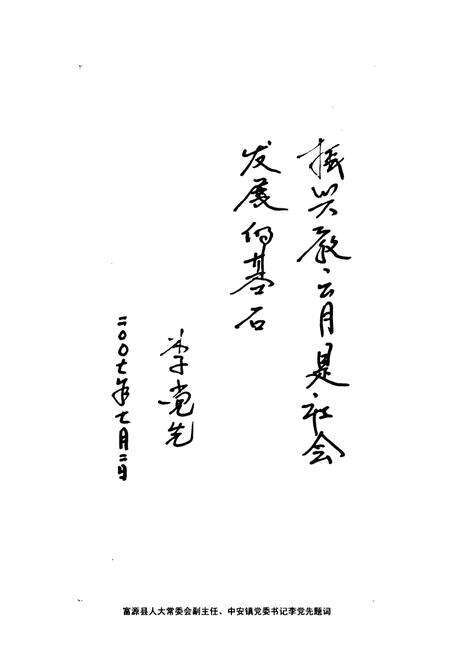 振兴教育是社会
发展的基石
李党先
二〇〇七年七月二日
富源县人大常委会副主任、中安镇党委书记李党先题词